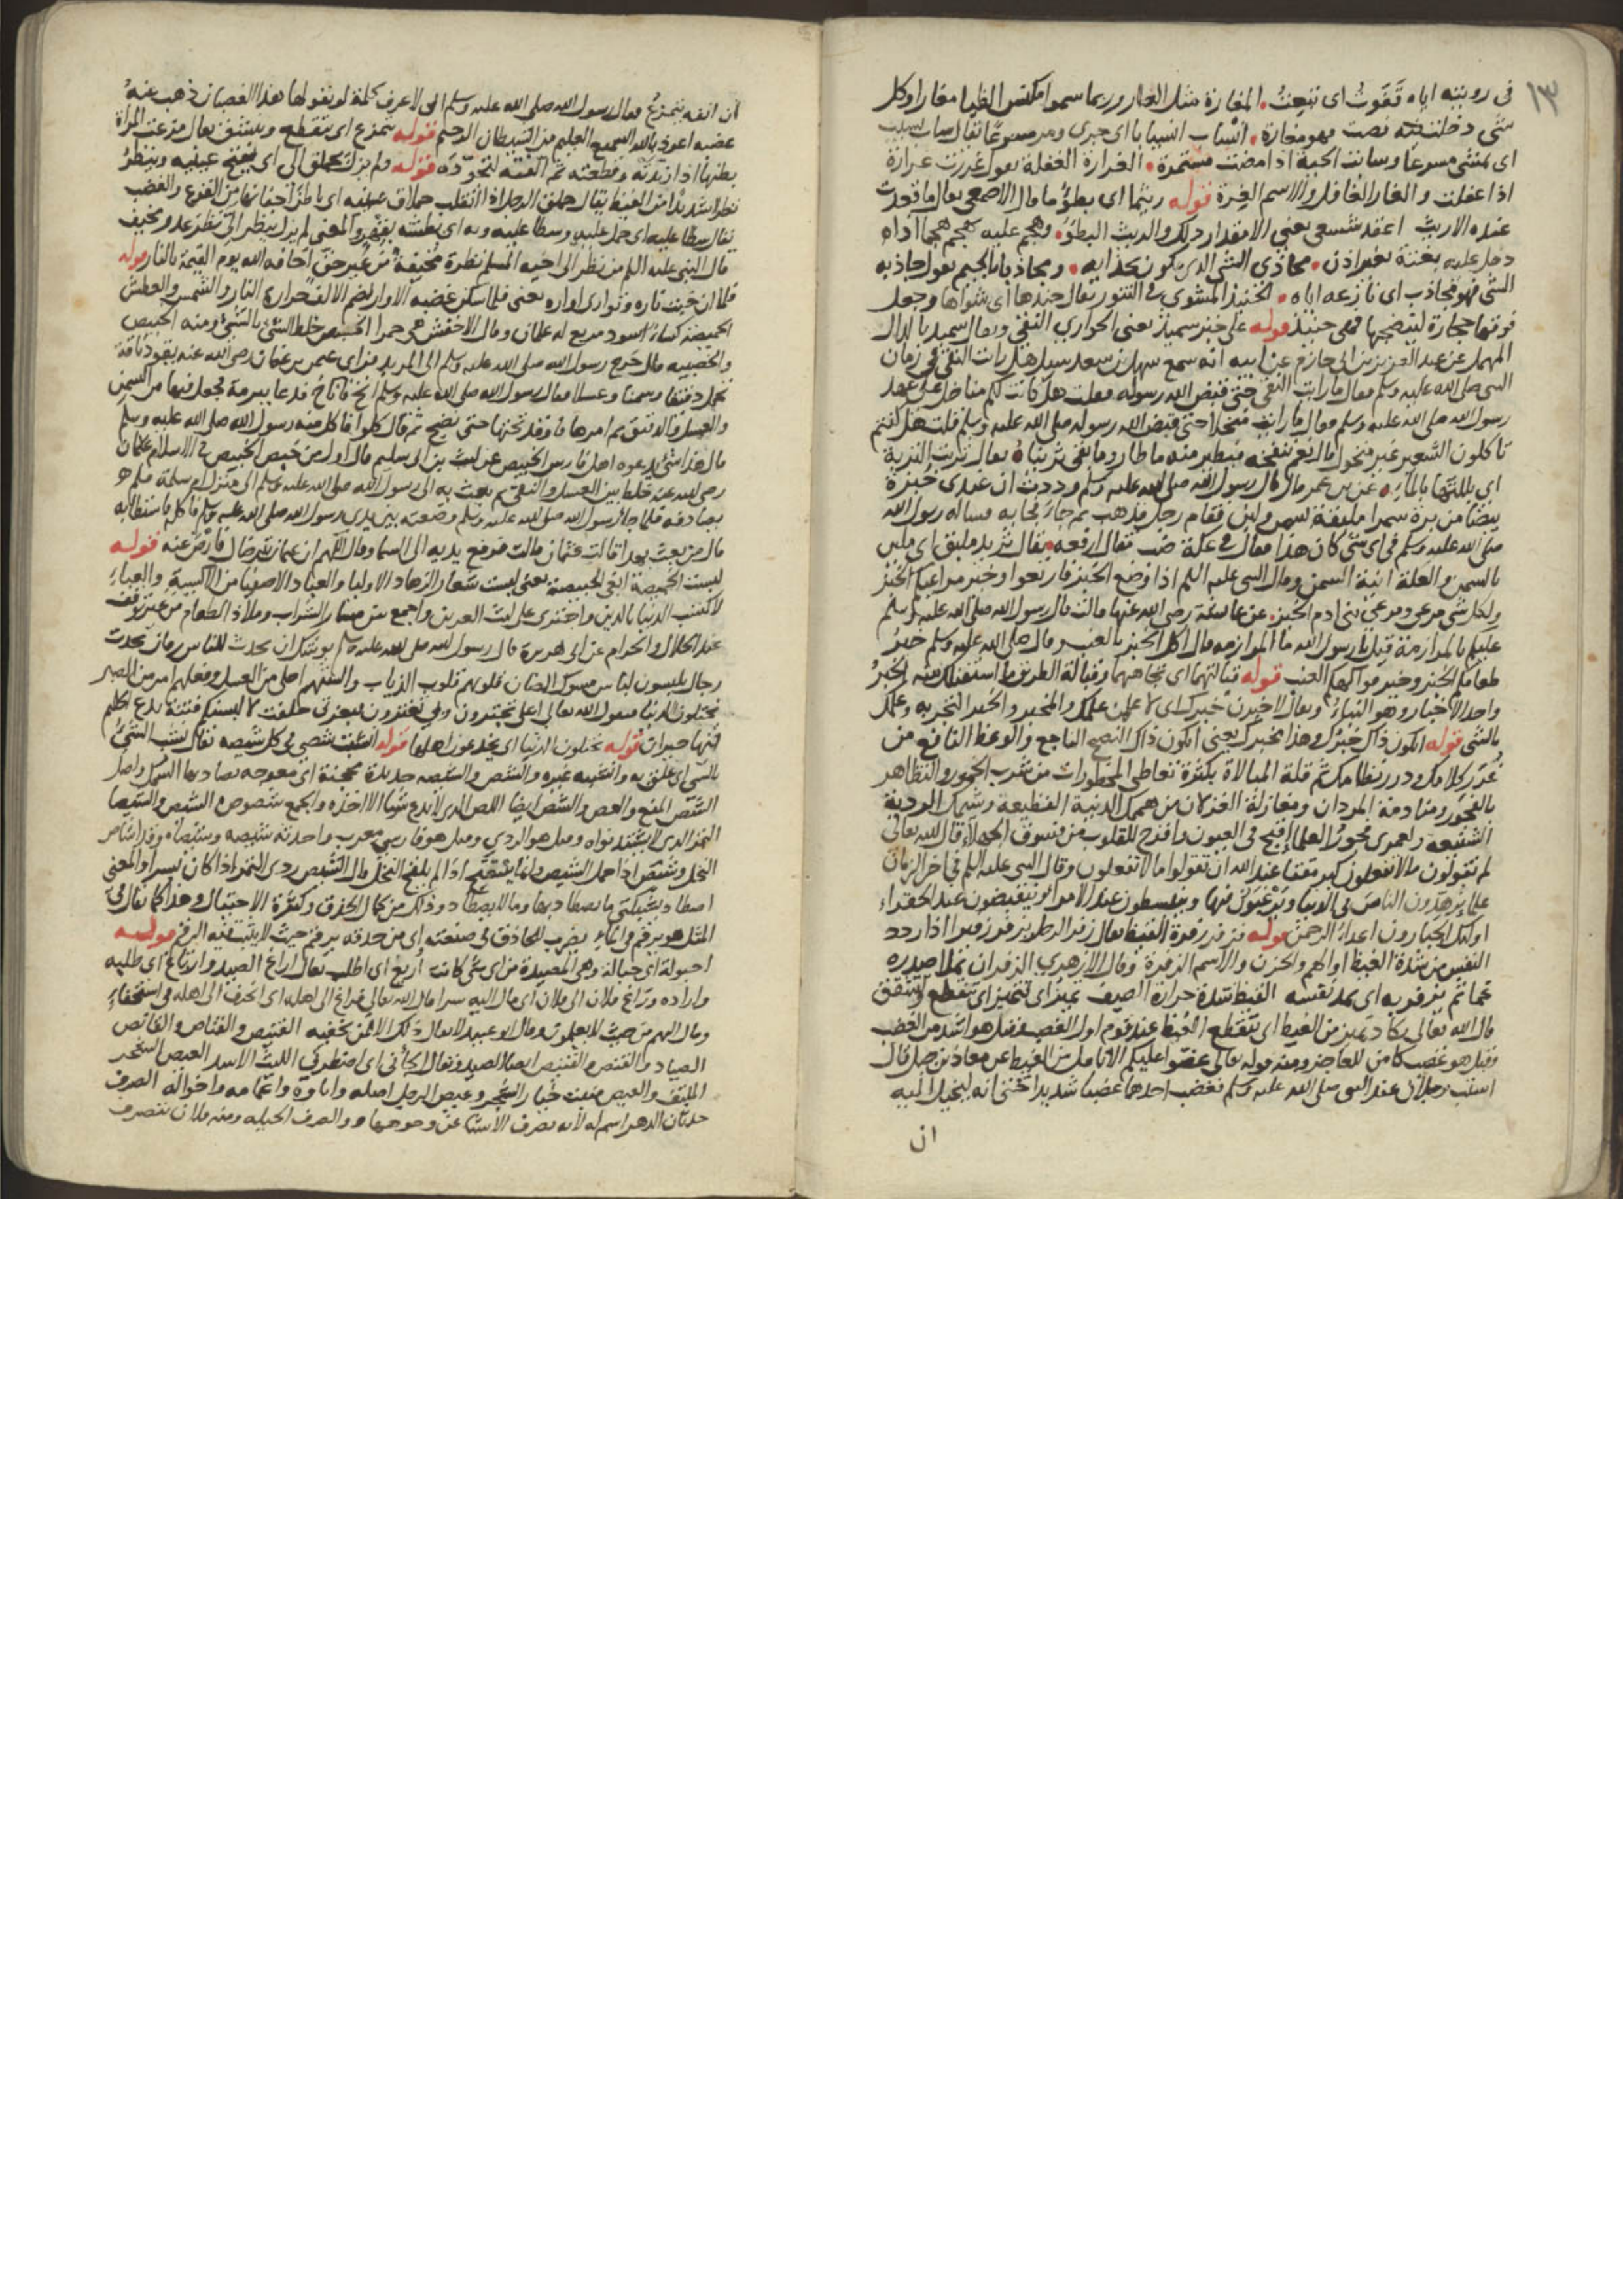 ١٣
في روبته اياه تقوت اى تتبعت المغارة مثل الغار وربما سموا مكنس الظبا مغارا وكل
شي دخلت فيه فهو مغارة انساب انسيابا اى جرى ومر مسرعا يقال ساب يسيب
اى مشى مسرعا وسابت الحية اذا مضت مستمرة الغرارة الغفلة يقول غررت غرارة
اذا غفلت والغار الغافل والاسم الغرة قوله ريثما اى بطؤ ما قال الاصمعي يقال ما قعدت
عنده الا ريث اعقد شسعي يعني الا مقدار ذلك والريث البطؤ وهجم عليه يهجم هجما اذا
دخل عليه بغتة بغير اذن محاذي الشي الذي يكون بحذايه ومجاذبا بالجيم يقول جاذبه
الشي فهو مجاذب اى نازعه اياه الحنيذ المشوي في التنور يقال حنذها اى شواها وجعل
فوقها حجارة لينضجها فهي حنيذ قوله على خبز سميذ يعني الحواري النقي ويقال سميد بالدال
المهملة عن عبد العزيز بن ابي حازم عن ابيه انه سمع سهل بن سعد سيل هل رايت النقي في زمان
النبي صلى الله عليه وسلم فقال ما رايت النقي حتى قبض الله رسوله فقلت هل كانت لكم مناخل على عهد
رسول الله صلى الله عليه وسلم فقال ما رايت منخلا حتى قبض الله رسوله صلى الله عليه وسلم قلت هل كنتم
تاكلون الشعير غير منخول قال نعم ننفخه فيطير منه ما طار وما بقي ثريناه يقال ثريت التربة
اى بللتها بالماء عن بن عمر قال قال رسول الله صلى الله عليه وسلم وددت ان عندي خبزة
بيضا من برة سمرا ملبقة بسمن ولبن فقام رجل فذهب ثم جاء بها به فساله رسول الله
صلى الله عليه وسلم في اى شي كان هذا فقال في عكة ضب فقال ارفعه يقال ثريد ملبق اى ملين
بالسمن والعكة انية السمن وقال النبي عليه السلم اذا وضع الخبز فاربعوا وخير مراعيكم الخبز
ولكل شي مرعى ومرعى بني ادم الخبز عن عايشة رضي الله عنها قالت قال رسول الله صلى الله عليه وسلم
عليكم بالمرازمة قيل يا رسول الله ما المرازمه قال اكل الخبز بالعنب وقال صلى الله عليه وسلم خير
طعامكم الخبز وخير فواكهكم العنب قوله قبالتهما اى تجاههما وقبالة الطريق ما استقبلك منه الخبر
واحد الاخبار وهو النباء ويقال لاخبرن خبرك اى لاعلمن علمك والمخبر والخبر التجربه وعلمك
بالشي قوله ايكون ذاك خبرك وهذا مخبرك يعني ايكون ذاك النصح الناجع والوعظ النافع من
غرر كلامك ودرر نظامك ثم قلة المبالاة بكثرة تعاطي المحظورات من شرب الخمور والتظاهر
بالفجور ومنادمة المردان ومغازلة الغزلان من هممك الدنية الفظيعة وشيمك الردية
الشنيعة ولعمري فجور العلماء اقبح في العيون واقدح للقلوب من فسوق الجهلاء قال الله تعالى
لم تقولون ما لا تفعلون كبر مقتا عند الله ان تقولوا ما لا تفعلون وقال النبي عليه السلم في اخر الزمان
علماء يزهدون الناس في الدنيا ويرغبون فيها وينبسطون عند الامراء وينقبضون عند الفقراء
اولئك الجبارون اعداء الرحمن قوله فزفر زفرة القيظ يقال زفر الرجل يزفر زفيرا اذا ردد
النفس من شدة الغيظ او الهم والحزن والاسم الزفرة وقال الازهري الزفير ان يملا صدره
غما ثم يزفر به اى يمد نفسه القيظ شدة حرارة الصيف تميز اى تتميز اى تتقطع وتشقق
قال الله تعالى تكاد تميز من الغيظ اى تتقطع الغيظ عند قوم اول الغضب وقيل هو اشد من الغضب
وقيل هو غضب كامن للعاجز ومنه قوله تعالى عضوا عليكم الانامل من الغيظ عن معاذ بن جبل قال
استب رجلان عند النبي صلى الله عليه وسلم فغضب احدهما غضبا شديدا حتى انه ليخيل اليه
ان
ان انفه يتمزع فقال رسول الله صلى الله عليه وسلم اني لاعرف كلمة لو يقولها هذا الغضبان ذهب عنه
غضبه اعوذ بالله السميع العليم من الشيطان الرجيم قوله يتمزع اى يتقطع ويتشقق يقال مزعت المراة
قطنها اذا زبدته وقطعته ثم الفته لتجوده قوله ولم يزل يحملق الي اى يفتح عينيه وينظر
نظرا شديدا من الغيظ يقال حملق الرجل اذا انقلب حملاق عينيه اى باطن اجفانها من الفزع والغضب
يقال سطا عليه اى حمل عليه وسطا عليه وبه اى بطش به بقهر والمعنى لم يزل ينظر الي نظر عدو مخيف
قال النبي عليه السلم من نظر الى اخيه المسلم نظرة مخيفة من غير حق اخافه الله يوم القيمة بالنار قوله
فلما ان خبت ناره وتوارى اواره يعني فلما سكن غضبه الاوار بضم الالف حرارة النار والشمس والعطش
الخميصة كساء اسود مربع له علمان وقال الاخفش هي حمرا الخبيص خلط الشي بالشي ومنه الخبيص
والخبيصه قال خرج رسول الله صلى الله عليه وسلم الى المربد فراى عثمن بن عفان رضي الله عنه يقود ناقة
تحمل دقيقا وسمنا وعسلا فقال رسول الله صلى الله عليه وسلم انخ فاناخ فدعا ببرمة فجعل فيها من السمن
والعسل والدقيق ثم امر بها فاوقد تحتها حتى نضج ثم قال كلوا فاكل منه رسول الله صلى الله عليه وسلم
قال هذا شي يدعوه اهل فارس الخبيص عن ليث بن ابي سليم قال اول من خبص الخبيص في الاسلام عثمان
رضي الله عنه خلط بين العسل والنقي ثم بعث به الى رسول الله صلى الله عليه وسلم الى منزل ام سلمة فلم
يصادفه فلما جاء رسول الله صلى الله عليه وسلم وضعته بين يدي رسول الله صلى الله عليه وسلم فاكله فاستطابه
قال من بعث بهذا قالت عثمان قالت فرفع يديه الى السما وقال اللهم ان عثمان يترضاك فارض عنه قوله
لبست الخميصة ابغي الخبيصة يعني لبست شعار الزهاد الاوليا والعباد الاصفيا من الاكسية والعباء
لاكتسب الدنيا بالدين
عند الحلال والحرام عن ابي هريرة قال رسول الله صلى الله عليه وسلم يوشك ان يحدث للناس زمان يحدث
رجال يلبسون لباس مسوك الضان قلوبهم قلوب الذياب والسنتهم احلى من العسل وفعلهم امر من الصبر
يختلون الدنيا فيقول الله تعالى اعلي تجترون وبي تغترون فبعزتي حلفت لالبسنكم فتنة تدع الحليم
فيها حيران قوله يختلون الدنيا اى يخدعون اهلها قوله انشبت شصي في كل شيصه يقال نشب الشي
بالشي اى علق به وانشبه غيره والشص والشص حديدة معجنة اى معوجه يصاد بها السمك واصل
الشص المنع والشص ايضا اللص الذي لا يدع شيا الا اخذه والجمع شصوص الشيص والشيصا
التمر الذي لا يشتد نواه وقيل هو الردي وقيل هو فارسي معرب واحدته شيصه وشيصاه وقد اشاص
النخل وشيص اذا حمل الشيص وانما يشيص اذا لم يلقح النخل قال الشيص ردي التمر اذا كان بسرا والمعنى
اصطاد بشبكتي ما يصطاد بها وما لا يصطاد وذلك من كمال الحذق وكثرة الاحتيال وهذا كما يقال في
المثل هو يرقم في الماء يضرب للحاذق في صنعته اى من حذقه يرقم حيث لا يثبت فيه الرقم قوله
احبولة اى حبالة وهي المصيدة من اى شي كانت اريغ اى اطلب يقال اراغ الصيد وارتاغ اى طلبه
واراده وراغ فلان الى فلان اى مال اليه سرا قال الله تعالى فراغ الى اهله اى انحرف الى اهله في استخفاء
ومال اليهم من حيث لا يعلمون وقال ابو عبيد لا يقال ذلك الا لمن يخفيه القنيص والقناص والقانص
الصياد والقنص والقنيص ايضا الصيد ويقال الجاني اى اضطرني الليث الاسد العيص الشجر
الملتف والعيص منبت خيار الشجر وعيص الرجل اصله واباوه واعمامه واخواله الصرف
حدثان الدهر اسم له لانه يصرف الاشيا عن وجوهها والصرف الحيله ومنه فلان يتصرف